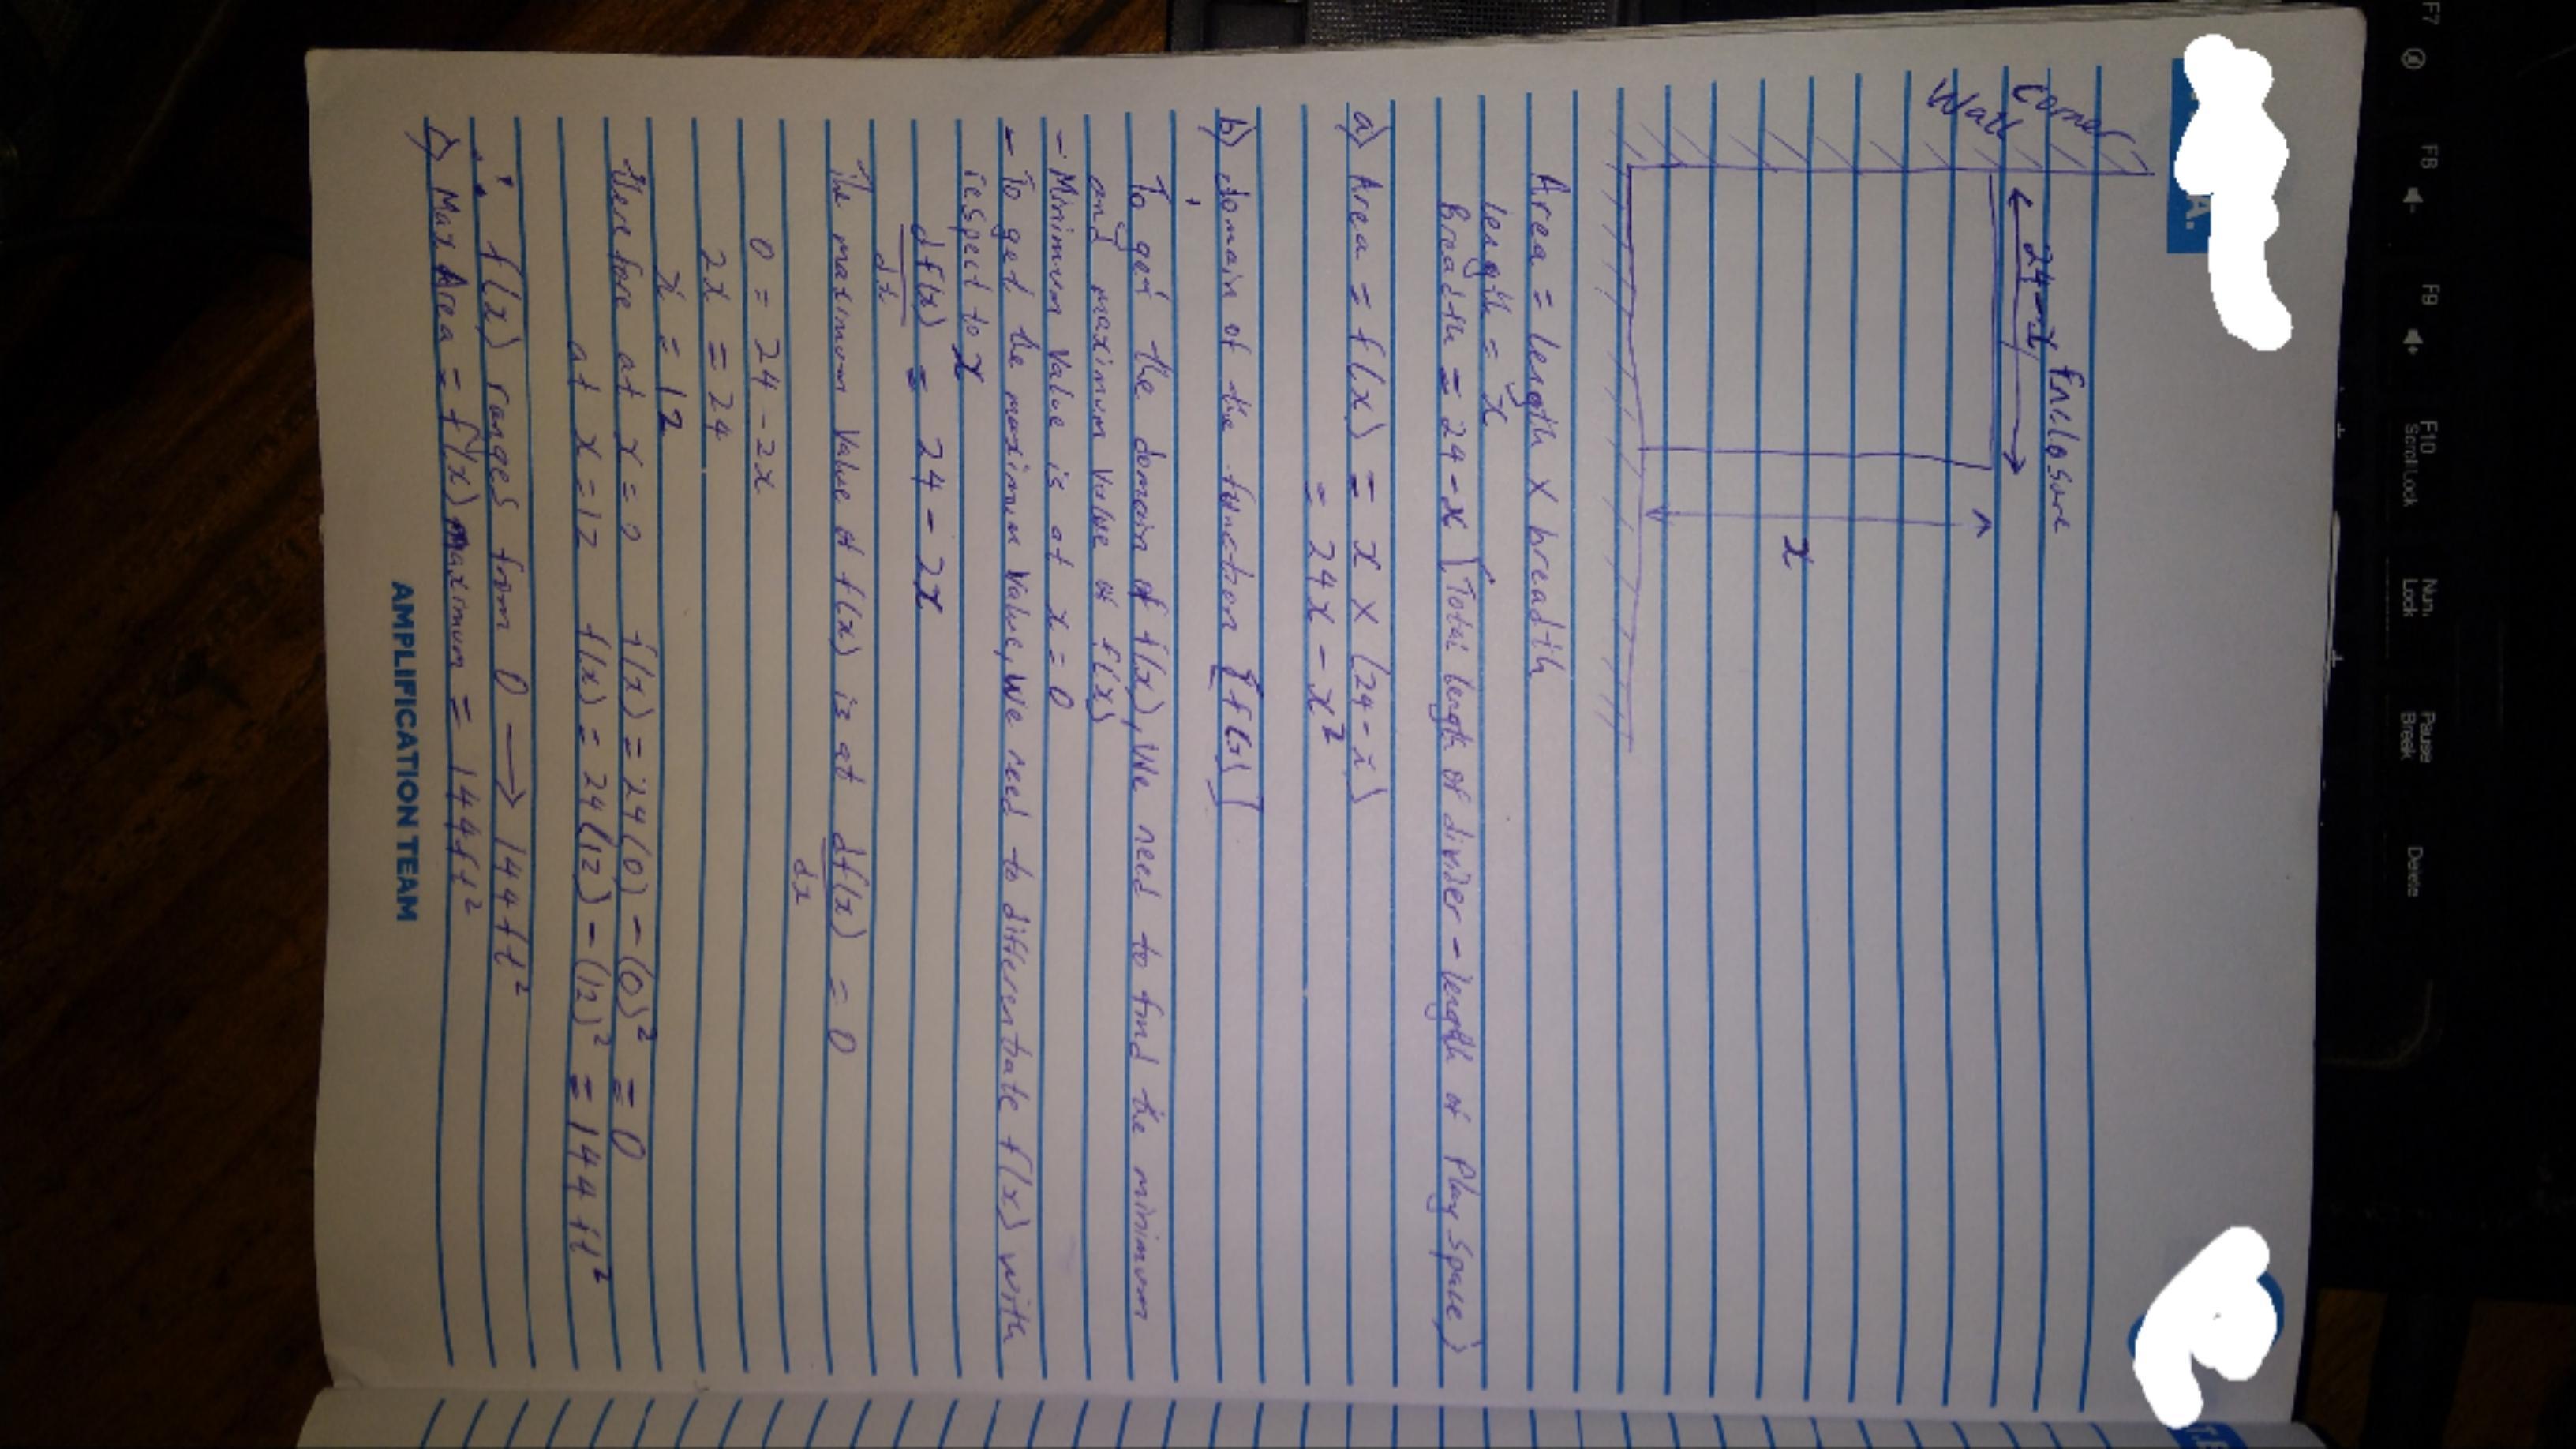 Corner
Wall
24-x
Enclosure
x
Area = length x breadth
length = x
Breadth = 24-x {Total length of divider - length of Play space}
a) Area = f(x) = x x (24-x)
= 24x - x²
b) domain of the function [f(x)]
To get the domain of f(x), we need to find the minimum
and maximum value of f(x)
- Minimum value is at x = 0
- To get the maximum value, we need to differentiate f(x) with
respect to x
df(x) = 24 - 2x
dx
The maximum value of f(x) is at df(x) = 0
dx
0 = 24 - 2x
2x = 24
x = 12
Therefore at x = 0 f(x) = 24(0) - (0)² = 0
at x = 12 f(x) = 24(12) - (12)² = 144 ft²
∴ f(x) ranges from 0 → 144 ft²
c) Max Area = f(x) maximum = 144 ft²
AMPLIFICATION TEAM
A.
F7
F8
F9
F10
Scroll Lock
Num
Lock
Pause
Break
Delete